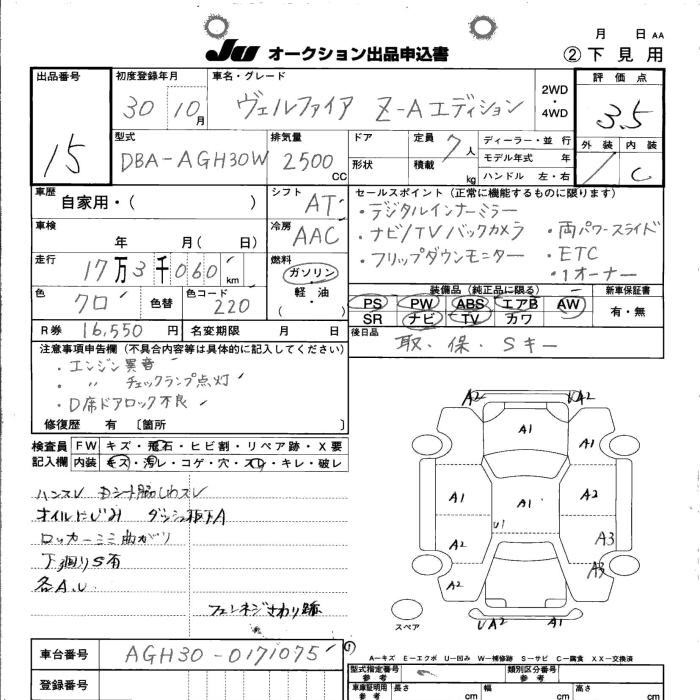 月 日 AA
JU オークション出品申込書
② 下見用
出品番号
15
初度登録年月
30 10月
車名・グレード
ヴェルファイア Z-Aエディション
2WD・4WD
評価点
3.5
外装 内装
C
型式
DBA-AGH30W
排気量
2500 CC
ドア
形状
定員
7人
積載 kg
ディーラー・並行
モデル年式 年
ハンドル 左・右
車歴
自家用・( )
シフト
AT
セールスポイント (正常に機能するものに限ります)
・デジタルインナーミラー
・ナビ/TVバックカメラ ・両パワースライド
・フリップダウンモニター ・ETC
・1オーナー
車検
年 月( 日)
冷房
AAC
走行
17万3千060km
燃料
ガソリン・軽・油
( )
色
クロ
色替
色コード
220
装備品 (純正品に限る)
新車保証書
PS PW ABS エアB AW
SR ナビ TV カワ
有・無
R券 16,550円
名変期限 月 日
後日品
取・保・Sキー
注意事項申告欄 (不具合内容等は具体的に記入してください)
・エンジン異音
・ 〃 チェックランプ点灯
・D席ドアロック不良
修復歴 有 [箇所 ]
検査員記入欄
FW キズ・飛石・ヒビ割・リペア跡・X要
内装 キズ・汚レ・コゲ・穴・スレ・キレ・破レ
ハンスレ
オイルにじみ
ロッカーミミ曲がり
下廻りS有
各A.U
A2 A2
A1
A1 A1
A1 A1 A2
U1
A2 A3
A2 A3
UA2 A1
スペア
車台番号
AGH30-0171075
登録番号
A=キズ E=エクボ U=凹み W=補修跡 S=サビ C=腐食 XX=交換済
型式指定番号
参考
類別区分番号
参考
車庫証明用
参考
長さ cm
幅 cm
高さ cm